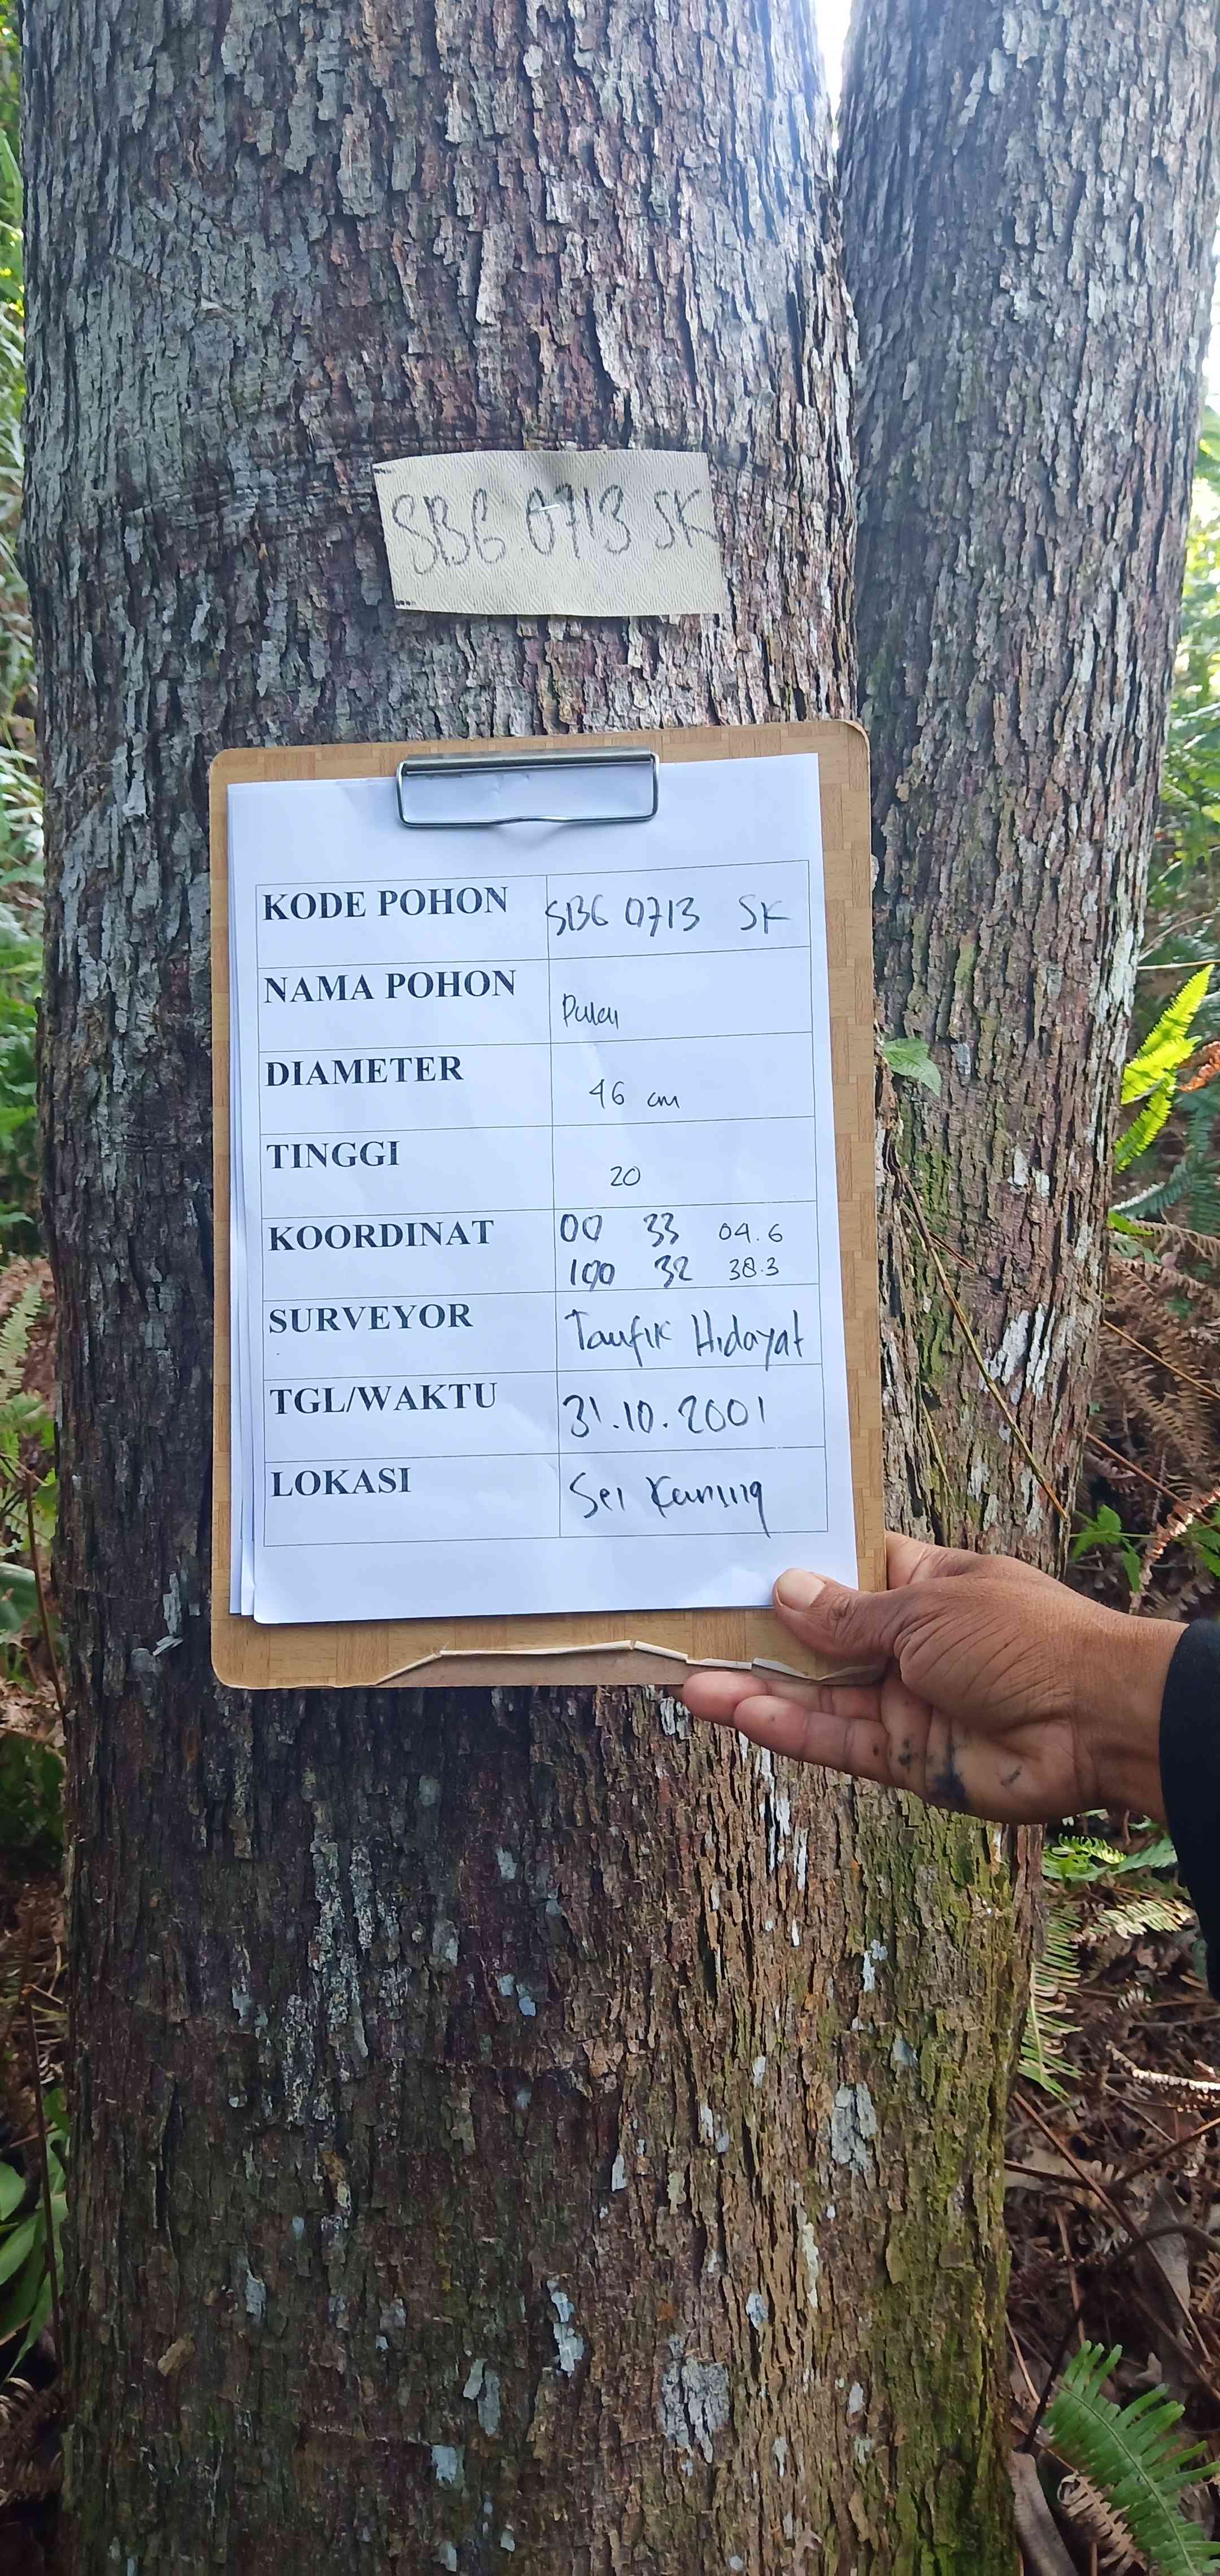 SBG 0713 SK
KODE POHON SBG 0713 SK
NAMA POHON Pulai
DIAMETER 46 cm
TINGGI 20
KOORDINAT 00 33 04.6
100 32 38.3
SURVEYOR Taufik Hidayat
TGL/WAKTU 31.10.2001
LOKASI Sei Kuning